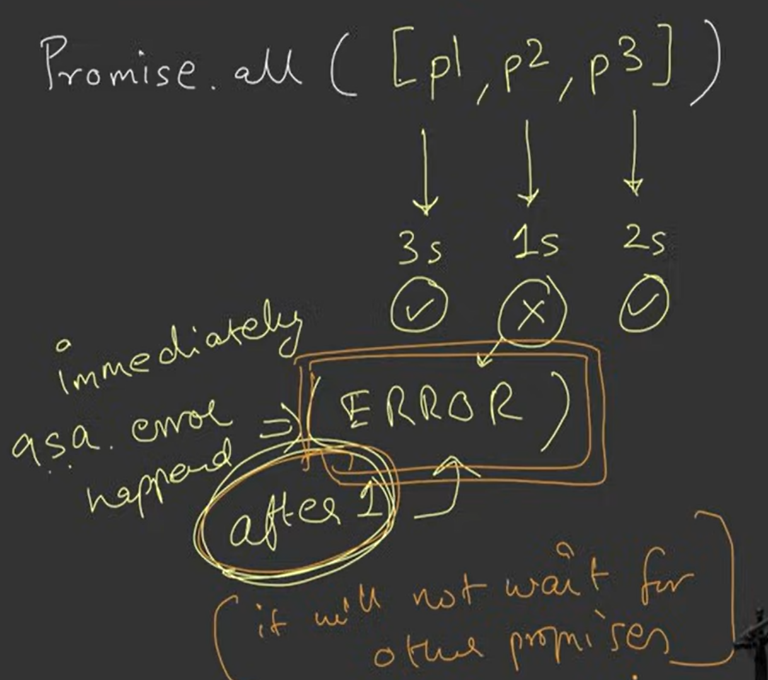 Promise.all ( [p1, p2, p3] )
3s 1s 2s
immediately
a.s.a. error
happend
=> ( ERROR )
after 1
( it will not wait for
other promises )